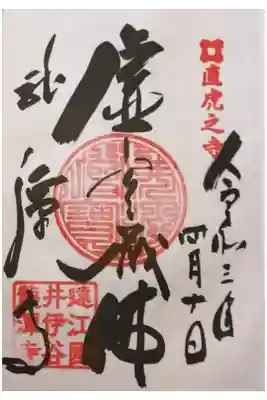 直虎之寺
令和三年
四月十日
虚空蔵佛
佛法僧寶
龍潭寺
遠江國
井伊谷
龍潭寺